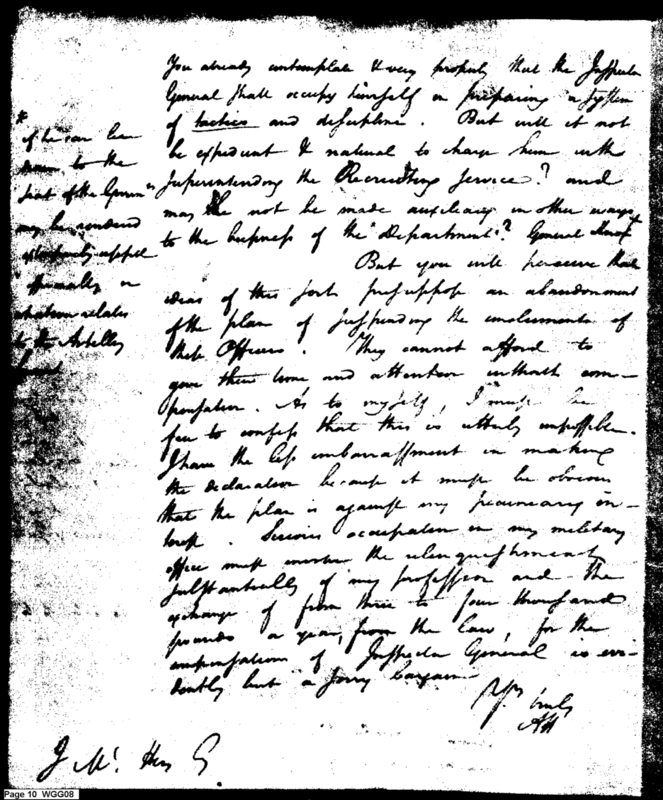 You already contemplate & very properly that the Inspector
General shall occupy himself in preparing a system
of tactics and discipline. But will it not
be expedient & natural to charge him with
superintending the Recruiting service? and
may He not be made auxiliary in other ways
to the business of the "Department"? General Knox
But you will perceive that
ideas of this sort presuppose an abandonment
of the plan of suspending the emoluments of
these Officers. They cannot afford to
give their time and attention without com-
pensation. As to myself, I must be
free to confess that this is utterly impossible.
I have the less embarrassment in making
the declaration because it must be obvious
that the plan is against my pecuniary in-
terest. Serious occupation in my military
office must involve the relinquishment
substantially of my profession and the
exchange of from three to four thousand
pounds a year, from the law, for the
compensation of Inspector General is evi-
dently but a sorry bargain
Yrs truly
AH
*
if he can be
drawn to the
seat of the Governt
may be rendered
extremely
in
whatever relates
to the Artillery
J Mc. Henry
Page 10 WGG08